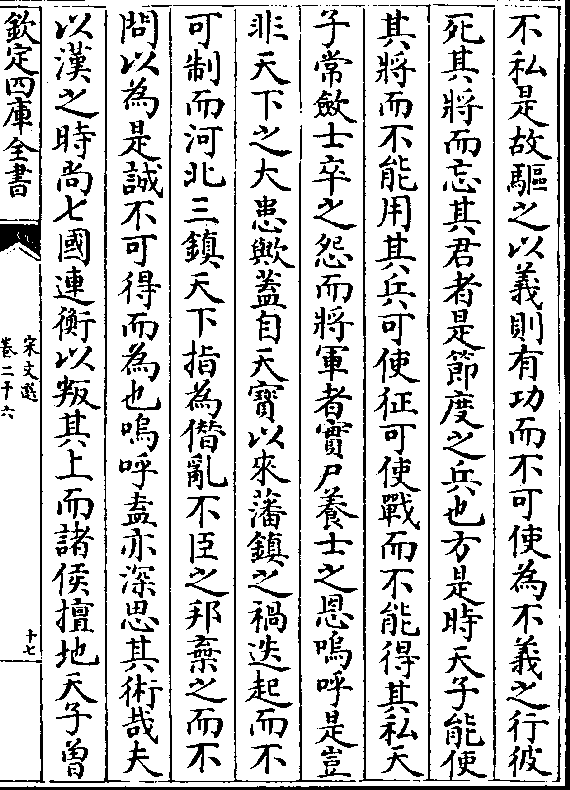 不私是故驅之以義則有功而不可使為不義之行彼
死其將而忘其君者是節度之兵也方是時天子能使
其將而不能用其兵可使征可使戰而不能得其私天
子常斂士卒之怨而將軍者實尸養士之恩嗚呼是豈
非天下之大患歟蓋自天寶以來藩鎮之禍迭起而不
可制而河北三鎮天下指為僭亂不臣之邦棄之而不
問以為是誠不可得而為也嗚呼盍亦深思其術哉夫
以漢之時尚七國連衡以叛其上而諸侯擅地天子曽
欽定四庫全書
宋文選
卷二十六
十七